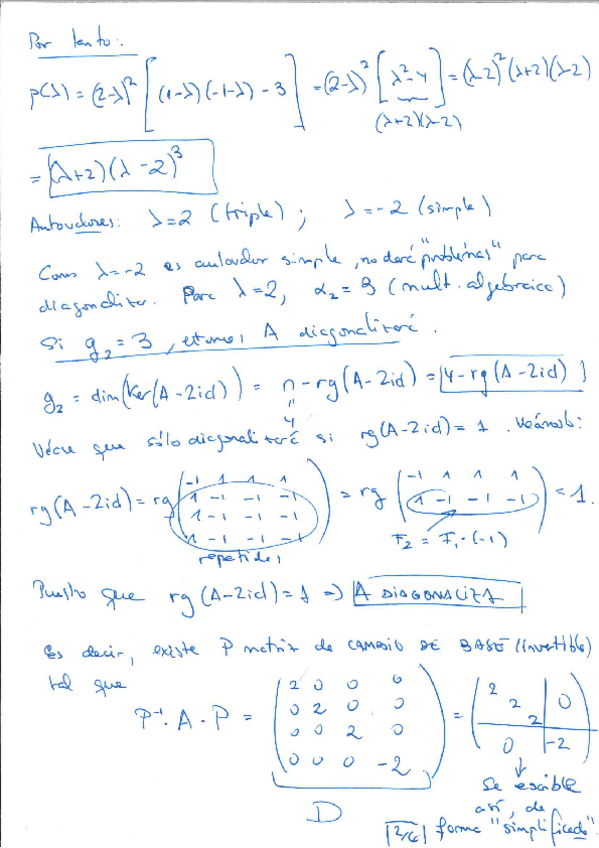 Por tanto:
p(λ) = (2-λ)² [ (1-λ)(-1-λ) - 3 ] = (2-λ)² [ λ²-4 ] = (λ-2)² (λ+2)(λ-2)
(λ+2)(λ-2)
= (λ+2)(λ-2)³
Autovalores: λ=2 (triple) ; λ=-2 (simple)
Como λ=-2 es autovalor simple, no dará "problemas" para
diagonalizar. Para λ=2, α₂ = 3 (mult. algebraica)
Si g₂ = 3, entonces A diagonalizará.
g₂ = dim(Ker(A-2id)) = n - rg(A-2id) = 4 - rg(A-2id)
" 4
Véase que sólo diagonalizará si rg(A-2id) = 1. Veámoslo:
rg(A-2id) = rg ( -1 1 1 1 = rg ( -1 1 1 1 = 1.
1 -1 -1 -1 1 -1 -1 -1 )
1 -1 -1 -1
1 -1 -1 -1 ) F₂ = F₁·(-1)
repetidas
Puesto que rg(A-2id) = 1 ⇒ A DIAGONALIZA
Es decir, existe P matriz de CAMBIO DE BASE (invertible)
tal que
P⁻¹·A·P = ( 2 0 0 0 = ( 2
0 2 0 0 2 0
0 0 2 0 2
0 0 0 -2 ) 0 -2 )
D
Se escribe
así, de
2/6 forma "simplificada".